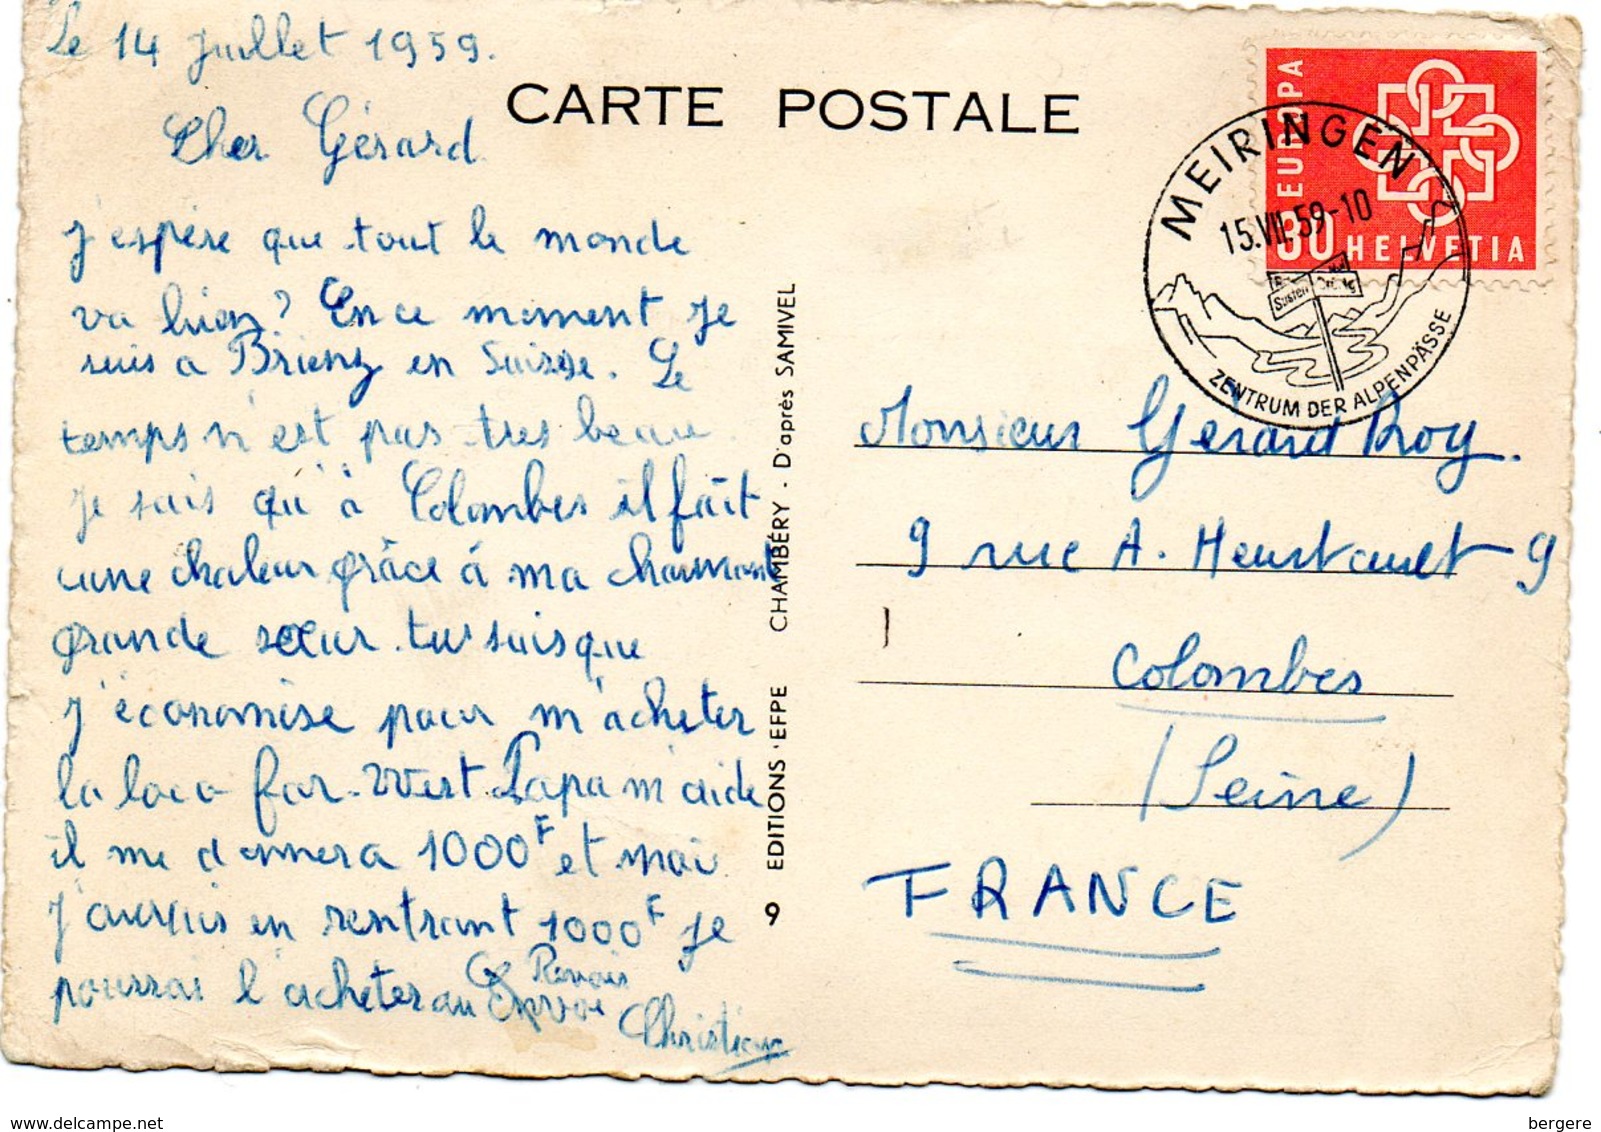 Le 14 Juillet 1959.
Cher Gérard
J'espère que tout le monde
va bien? En ce moment je
suis a Brienz en Suisse. Le
temps n'est pas tres beau.
Je sais qu'à Colombes il fait
une chaleur grâce à ma charmante
grande sœur. tu sais que
j'économise pour m'acheter
la loco far-west Papa m'aide
il me donnera 1000F et moi
j'aurais en rentrant 1000F je
pourrai l'acheter au
Revoir
Christian
CARTE POSTALE
EDITIONS·EFPE CHAMBÉRY - D'après SAMIVEL
9
EUROPA
30 HELVETIA
MEIRINGEN
15.VII.59-10
Susten
ZENTRUM DER ALPENPÄSSE
Monsieur Gérard Roy.
9 rue A. Heurtault 9
Colombes
(Seine)
FRANCE
bergere